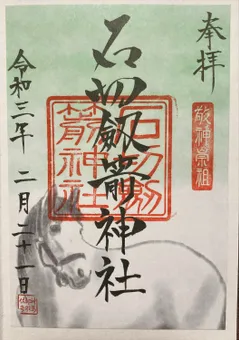 奉拝
敬神崇祖
石切劔箭神社
石切劔
箭神社
令和三年 二月二十一日